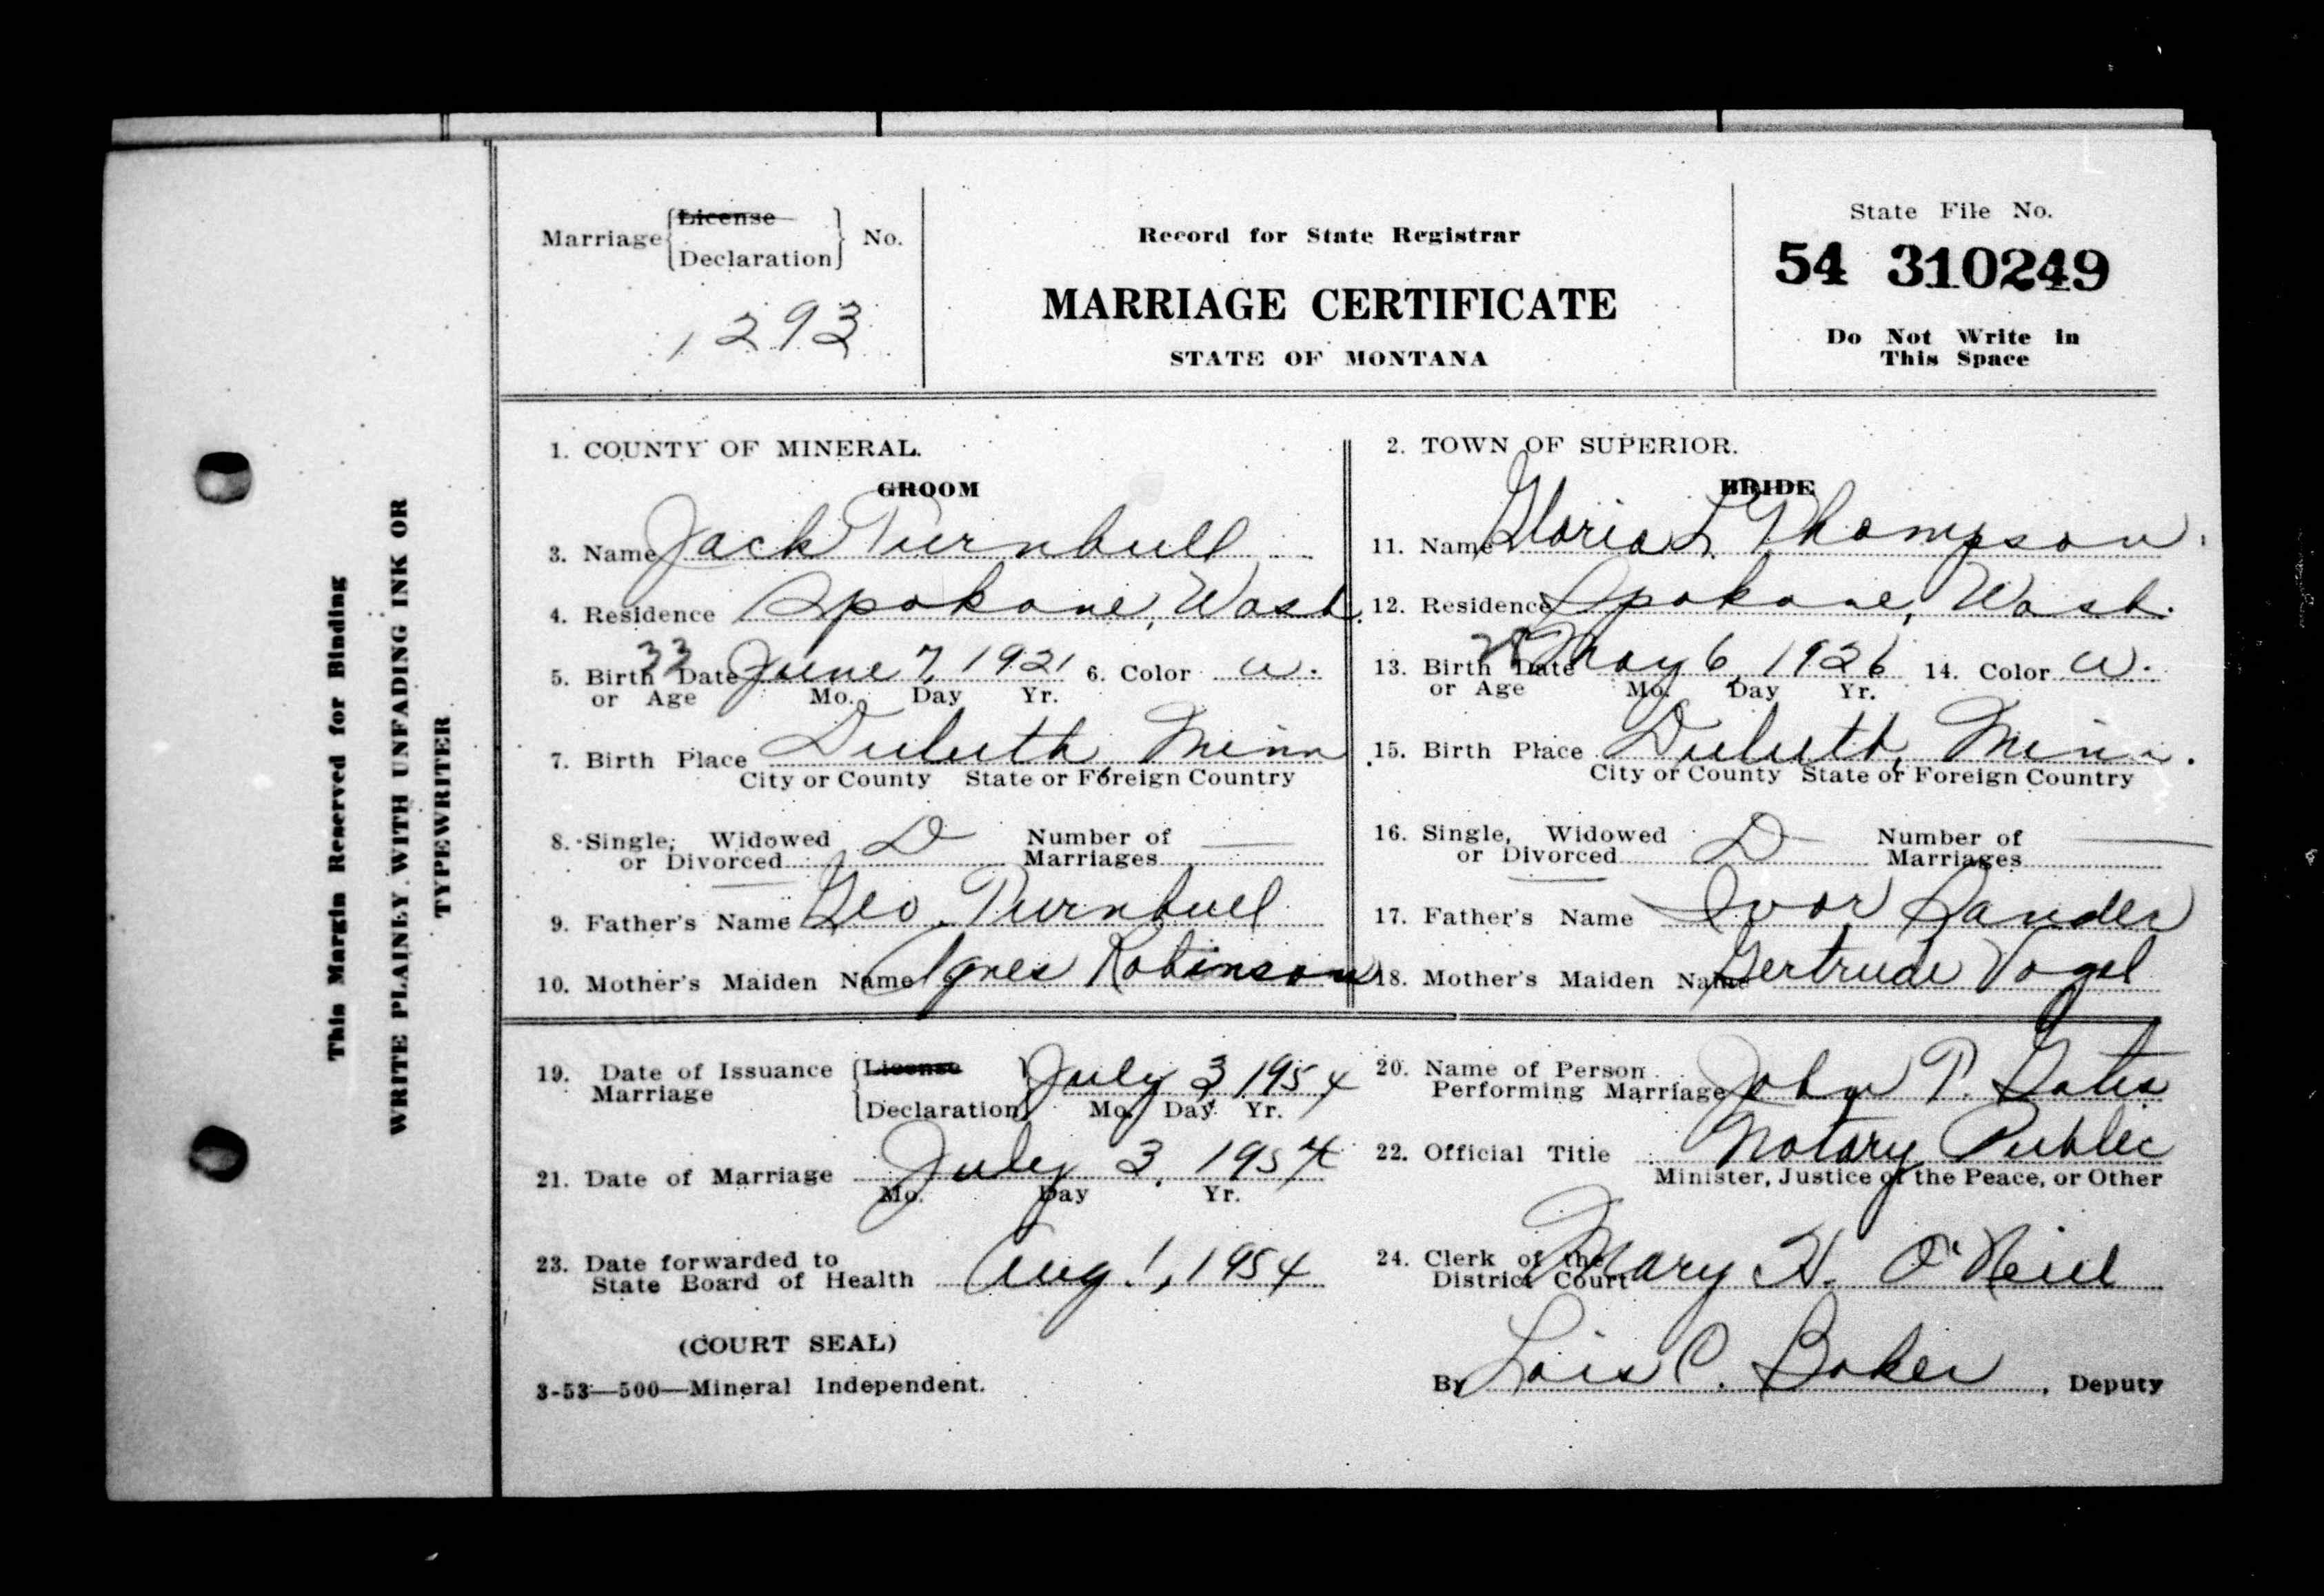 This Margin Reserved for Binding
WRITE PLAINLY WITH UNFADING INK OR
TYPEWRITER
Marriage { License Declaration } No.
1293
Record for State Registrar
MARRIAGE CERTIFICATE
STATE OF MONTANA
State File No.
54 310249
Do Not Write in
This Space
1. COUNTY OF MINERAL.
2. TOWN OF SUPERIOR.
GROOM
3. Name Jack Turnbull
4. Residence Spokane, Wash.
33
5. Birth Date June 7, 1921 6. Color W.
or Age Mo. Day Yr.
7. Birth Place Duluth, Minn.
City or County State or Foreign Country
8. Single, Widowed D Number of —
or Divorced Marriages
9. Father's Name Geo. Turnbull
10. Mother's Maiden Name Agnes Robinson
BRIDE
11. Name Gloria L. Thompson.
12. Residence Spokane, Wash.
28
13. Birth Date May 6, 1926 14. Color W.
or Age Mo. Day Yr.
15. Birth Place Duluth, Minn.
City or County State or Foreign Country
16. Single, Widowed D Number of —
or Divorced Marriages
17. Father's Name Ivor Sander
18. Mother's Maiden Name Gertrude Vogel
19. Date of Issuance { License July 3, 1954
Marriage { Declaration } Mo. Day Yr.
20. Name of Person
Performing Marriage John P. Gates
21. Date of Marriage July 3, 1954
Mo. Day Yr.
22. Official Title Notary Public
Minister, Justice of the Peace, or Other
23. Date forwarded to
State Board of Health Aug 1, 1954
24. Clerk of the
District Court Mary H. O'Neill
(COURT SEAL)
3-53—500—Mineral Independent.
By Lois C. Baker, Deputy